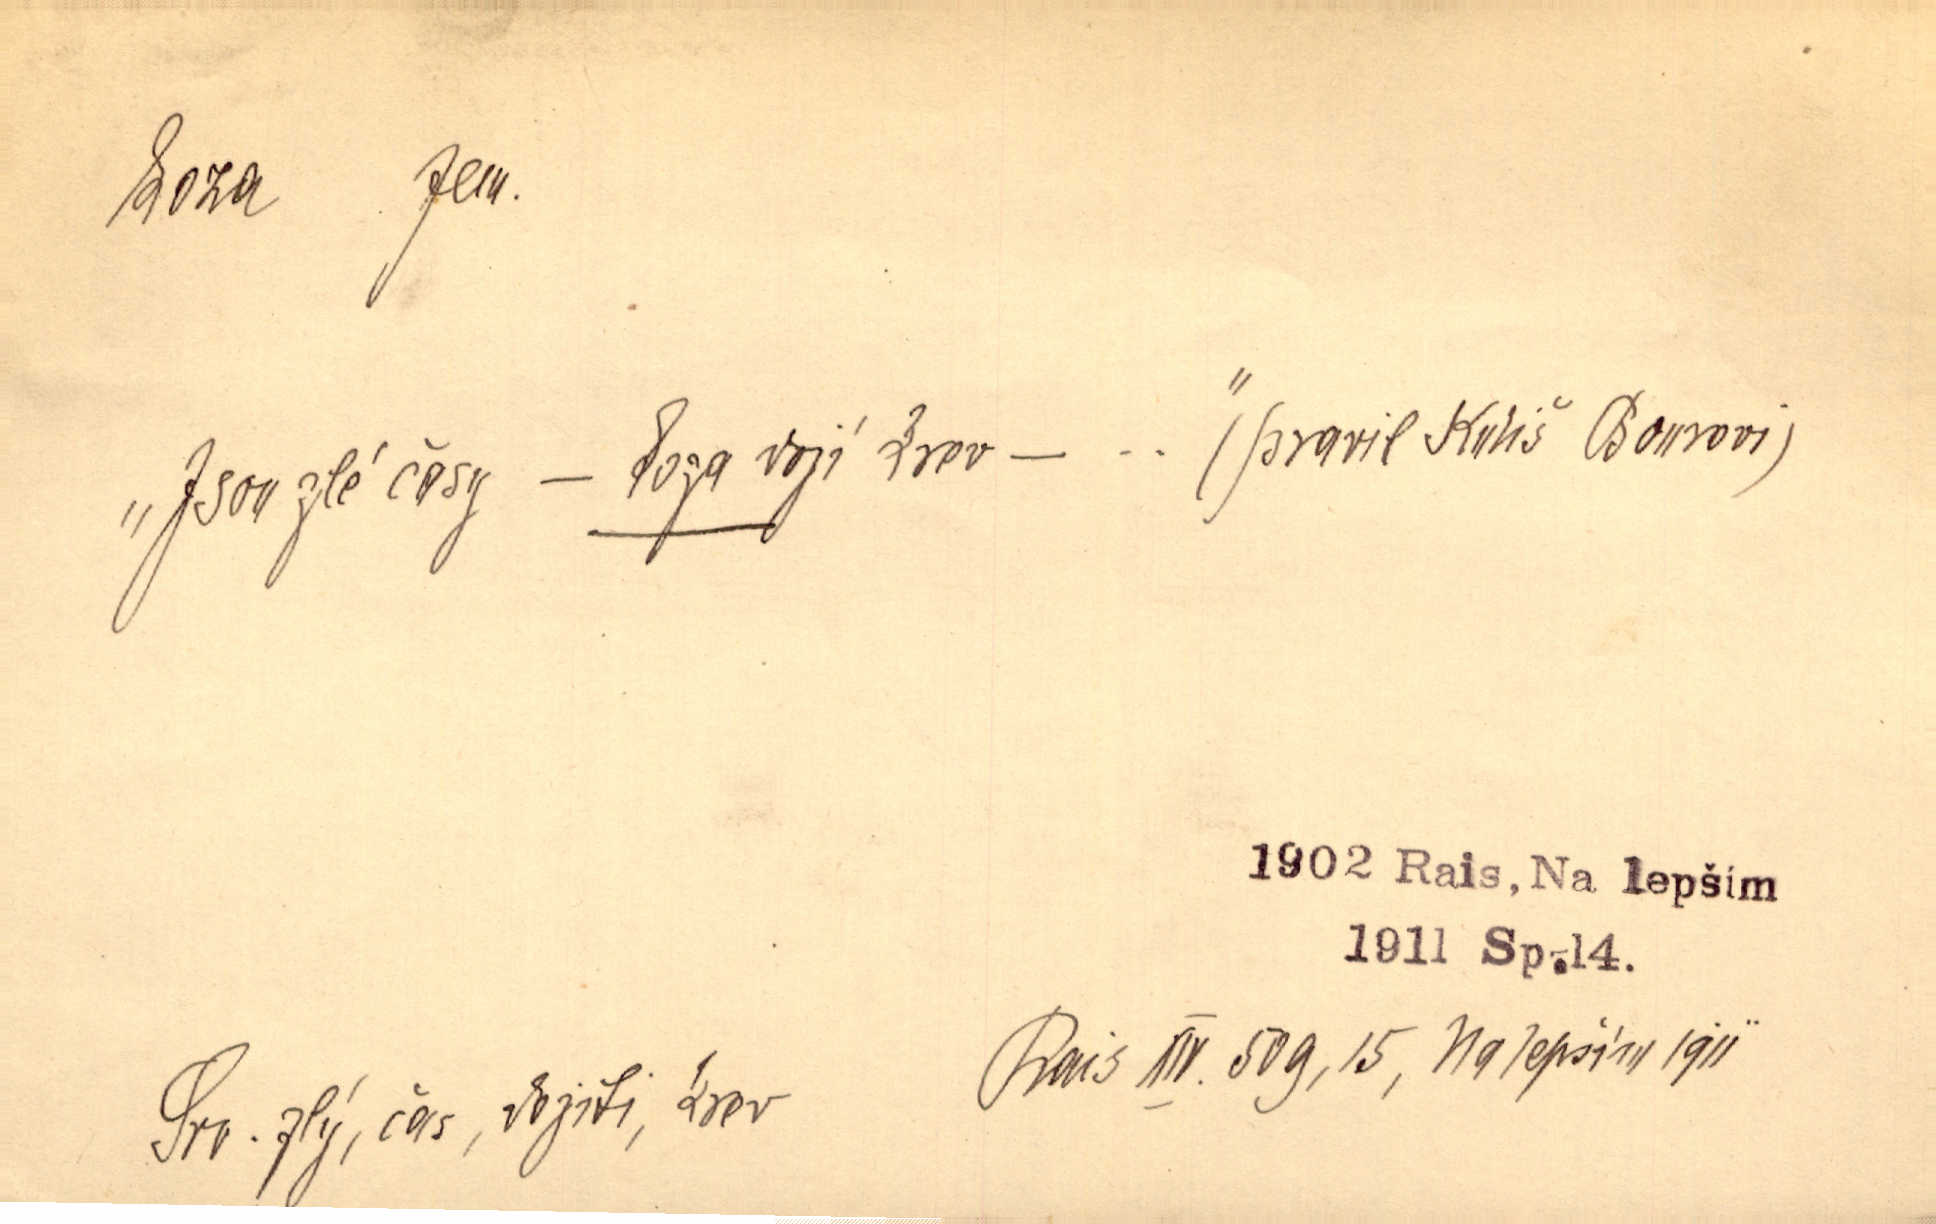 koza fem.
„Jsou zlé časy – koza dojí krev – .." (pravil Kuliš Bourovi)
1902 Rais, Na lepším
1911 Sp. 14.
Rais XIV. 509, 15, Na lepším 1911
Srv. zlý, čas, dojiti, krev